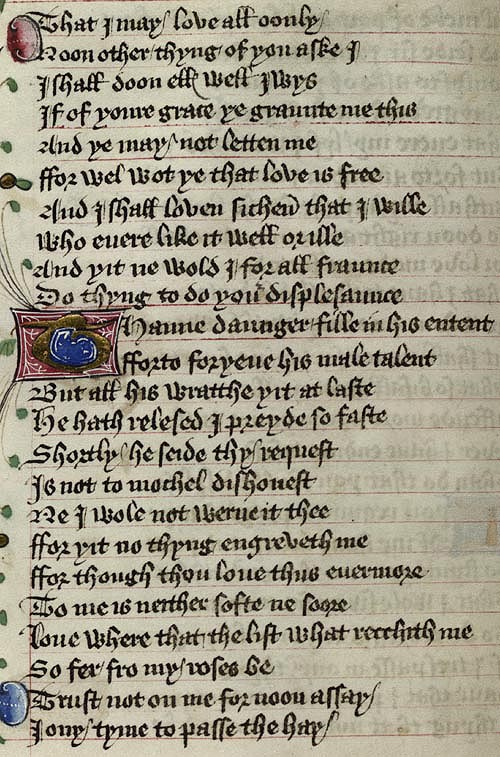 That I may love all oonly
Noon other thyng of you aske I
I shall doon ell well I wys
If of youre grace ye graunte me this
And ye may not letten me
ffor wel wot ye that love is free
And I shall loven sichen that I wille
Who euere like it well or ille
And yit ne wold I for all fraunce
Do thyng to do you displesaunce
Thanne daunger fille in his entent
fforto foryeue his male talent
But all his wratthe yit at laste
He hath relesed I preyde so faste
Shortly he seide thy request
Is not to mochel dishonest
Ne I wole not werne it thee
ffor yit no thyng engreveth me
ffor though thou loue thus euermore
To me is neither softe ne soore
Loue where that the list what recchith me
So fer fro my roses be
Trust not on me for noon assay
I ony tyme to passe the hay